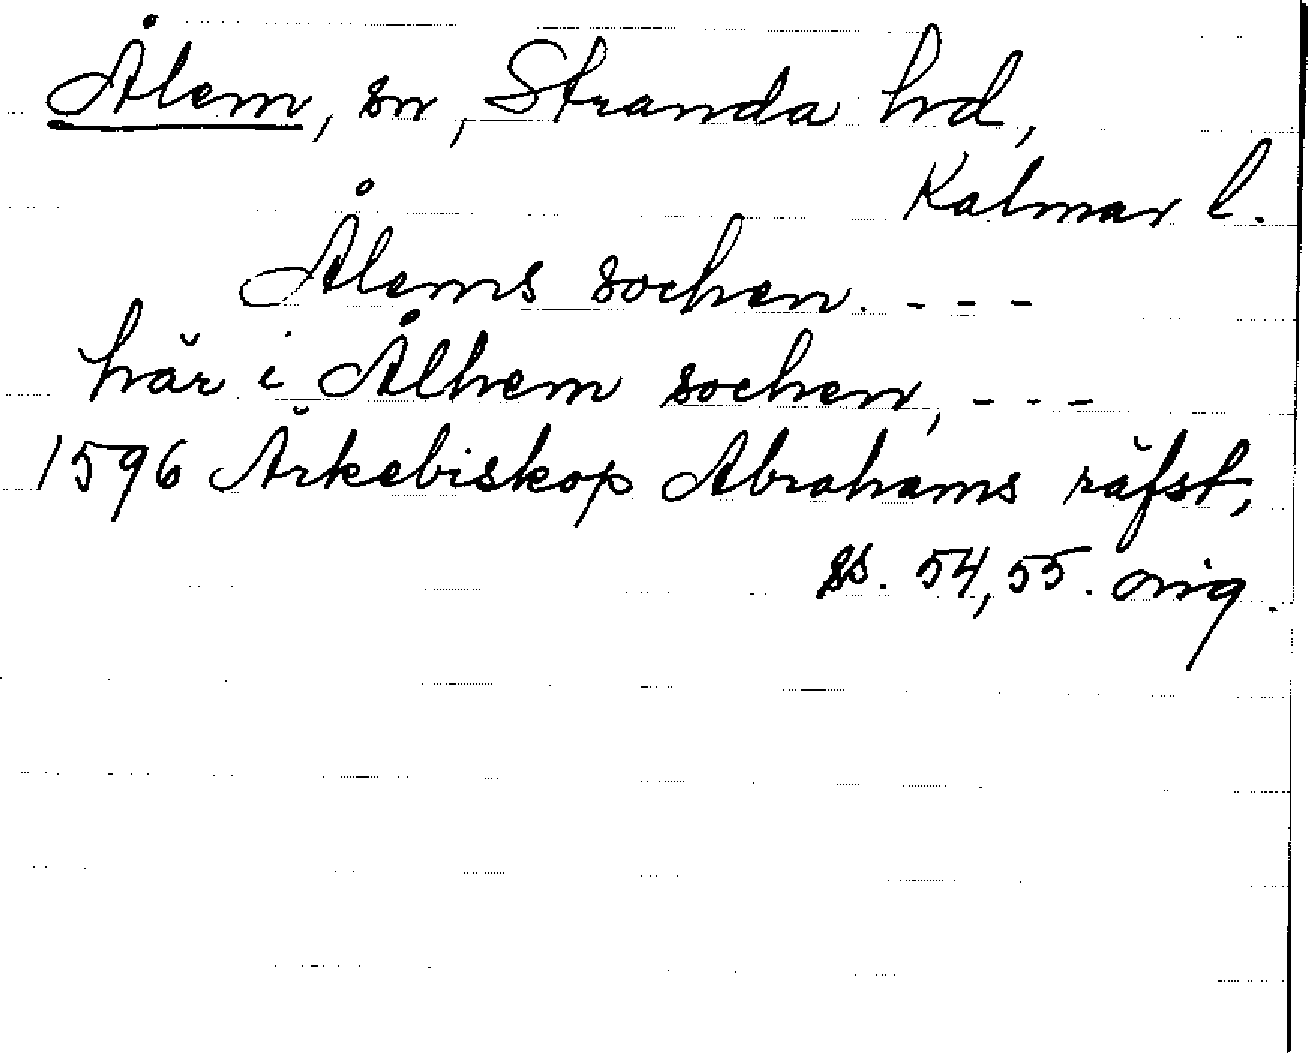 Ålem, sn, Stranda hd,
Kalmar l.
Ålems sochen. - - -
här i Ålhem sochen, - - -
1596 Ärkebiskop Abrahams räfst,
ss. 54, 55. orig.